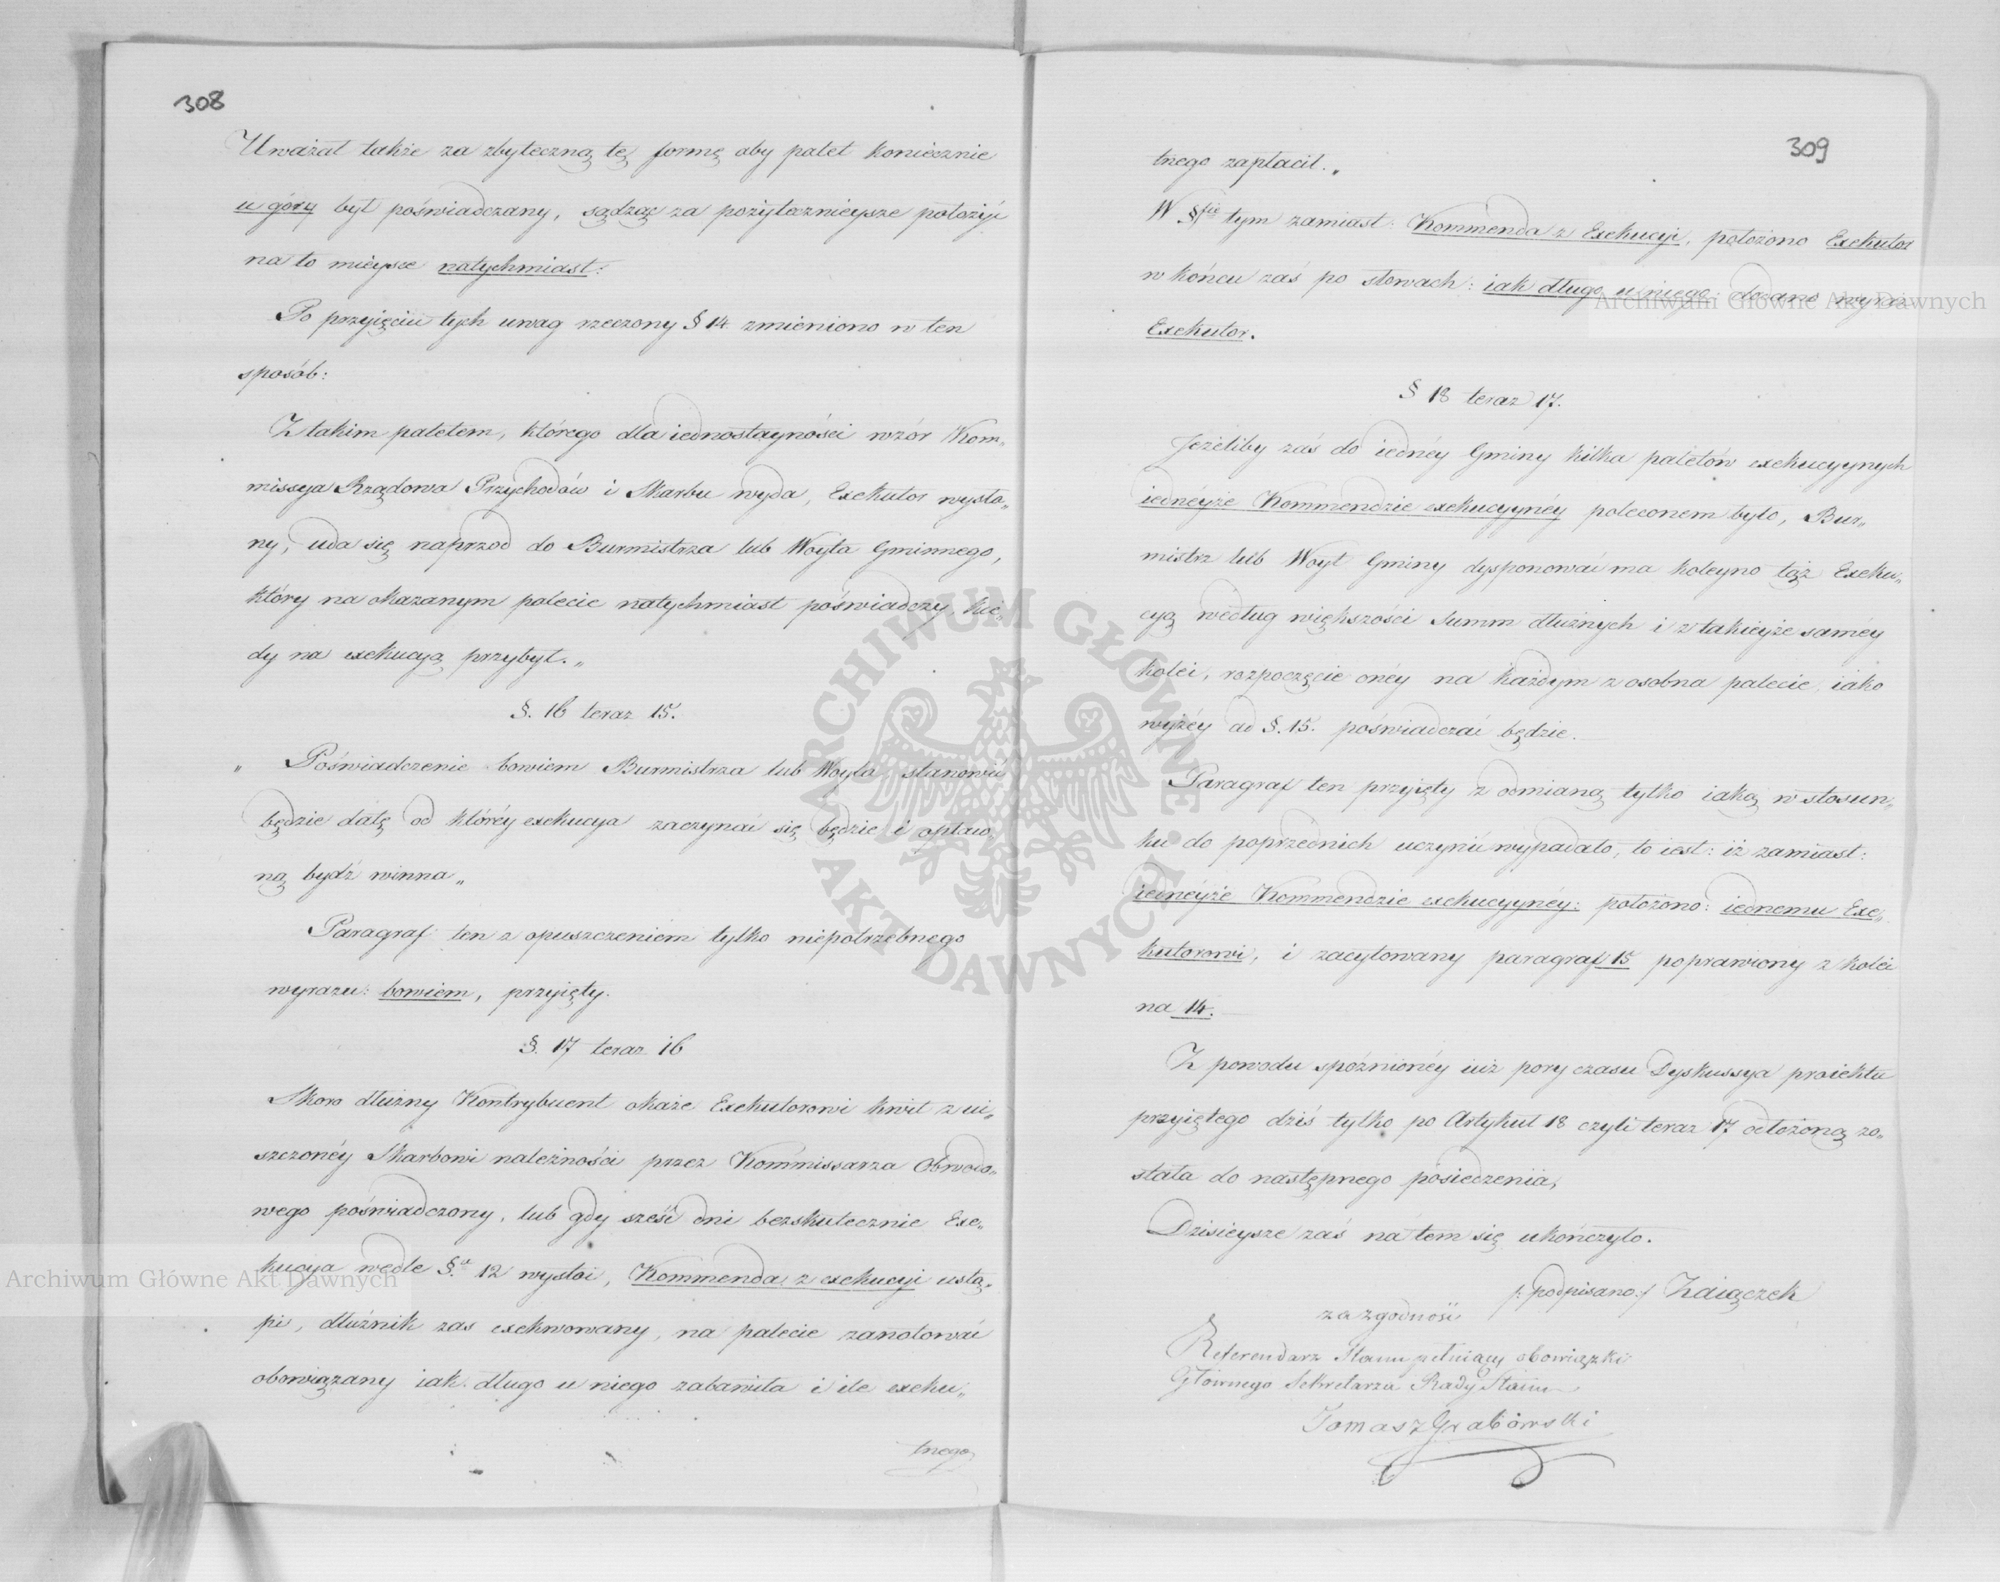 308
Uważał także za zbyteczną tę formę aby palet koniecznie
u góry był poświadczany, sądząc za pożytecznieysze położyć
na to mieysce natychmiast:
Po przyięciu tych uwag rzeczony § 14 zmieniono w ten
sposób:
Z takim paletem, którego dla iednostayności wzór Kom„
missya Rządowa Przychodów i Skarbu wyda, Exekutor wysła„
ny, uda się naprzod do Burmistrza lub Woyta Gminnego,
który na okazanym palecie natychmiast poświadczy, kie„
dy na exekucyą przybył.„
§. 16 teraz 15.
„ Poświadczenie bowiem Burmistrza lub Woyta stanowić
będzie datę od któréy exekucya zaczynać się będzie i opłaco„
ną bydź winna„
Paragraf ten z opuszczeniem tylko niepotrzebnego
wyrazu: bowiem, przyięty.
§. 17 teraz 16
Skoro dłużny Kontrybuent okaże Exekutorowi kwit z ui„
szczonéy Skarbowi należności przez Kommissarza Obwodo„
wego poświadczony, lub gdy sześć dni bezskutecznie Exe„
kucya wedle §.u 12 wystoi, Kommenda z exekucyi ustą„
pi, dłużnik zas exekwowany, na palecie zanotować
obowiązany iak długo u niego zabawiła i ile exeku„
tnego
309
tnego zapłacił.„
W §fie tym zamiast: Kommenda z Exekucyi, położono Exekutor
w końcu zaś po słowach: iak długo u niego: dodano wyraz
Exekutor.
§ 18 teraz 17.
Jeżeliby zaś do iednéy Gminy kilka paletów exekucyynych
iednéyże Kommendzie exekucyynéy poleconem było, Bur„
mistrz lub Woyt Gminy dysponować ma koleyno tąż Exeku„
cyą według większości summ dłużnych i w takieyże saméy
kolei, rozpoczęcie onéy na każdym z osobna palecie iako
wyżéy ad §.15. poświadczać będzie.
Paragraf ten przyięty z odmianą tylko iaką w stosun„
ku do poprzednich uczynić wypadało, to iest: iż zamiast:
iednéyże Kommendzie exekucyynéy: położono: iednemu Exe„
kutorowi, i zacytowany paragraf 15 poprawiony z kolei
na 14.
Z powodu spóźnionéy iuż pory czasu Dyskussya proiektu
przyiętego dziś tylko po Artykuł 18 czyli teraz 17 odłożoną zo„
stała do następnego posiedzenia,
Dzisieysze zaś na tem się ukończyło.
/: podpisano :/ Zaiączek
za zgodność
Referendarz Stanu pełniący obowiązki
Głównego Sekretarza Rady Stanu
Tomasz Grabowski
Archiwum Główne Akt Dawnych
Archiwum Główne Akt Dawnych
ARCHIWUM GŁÓWNE AKT DAWNYCH